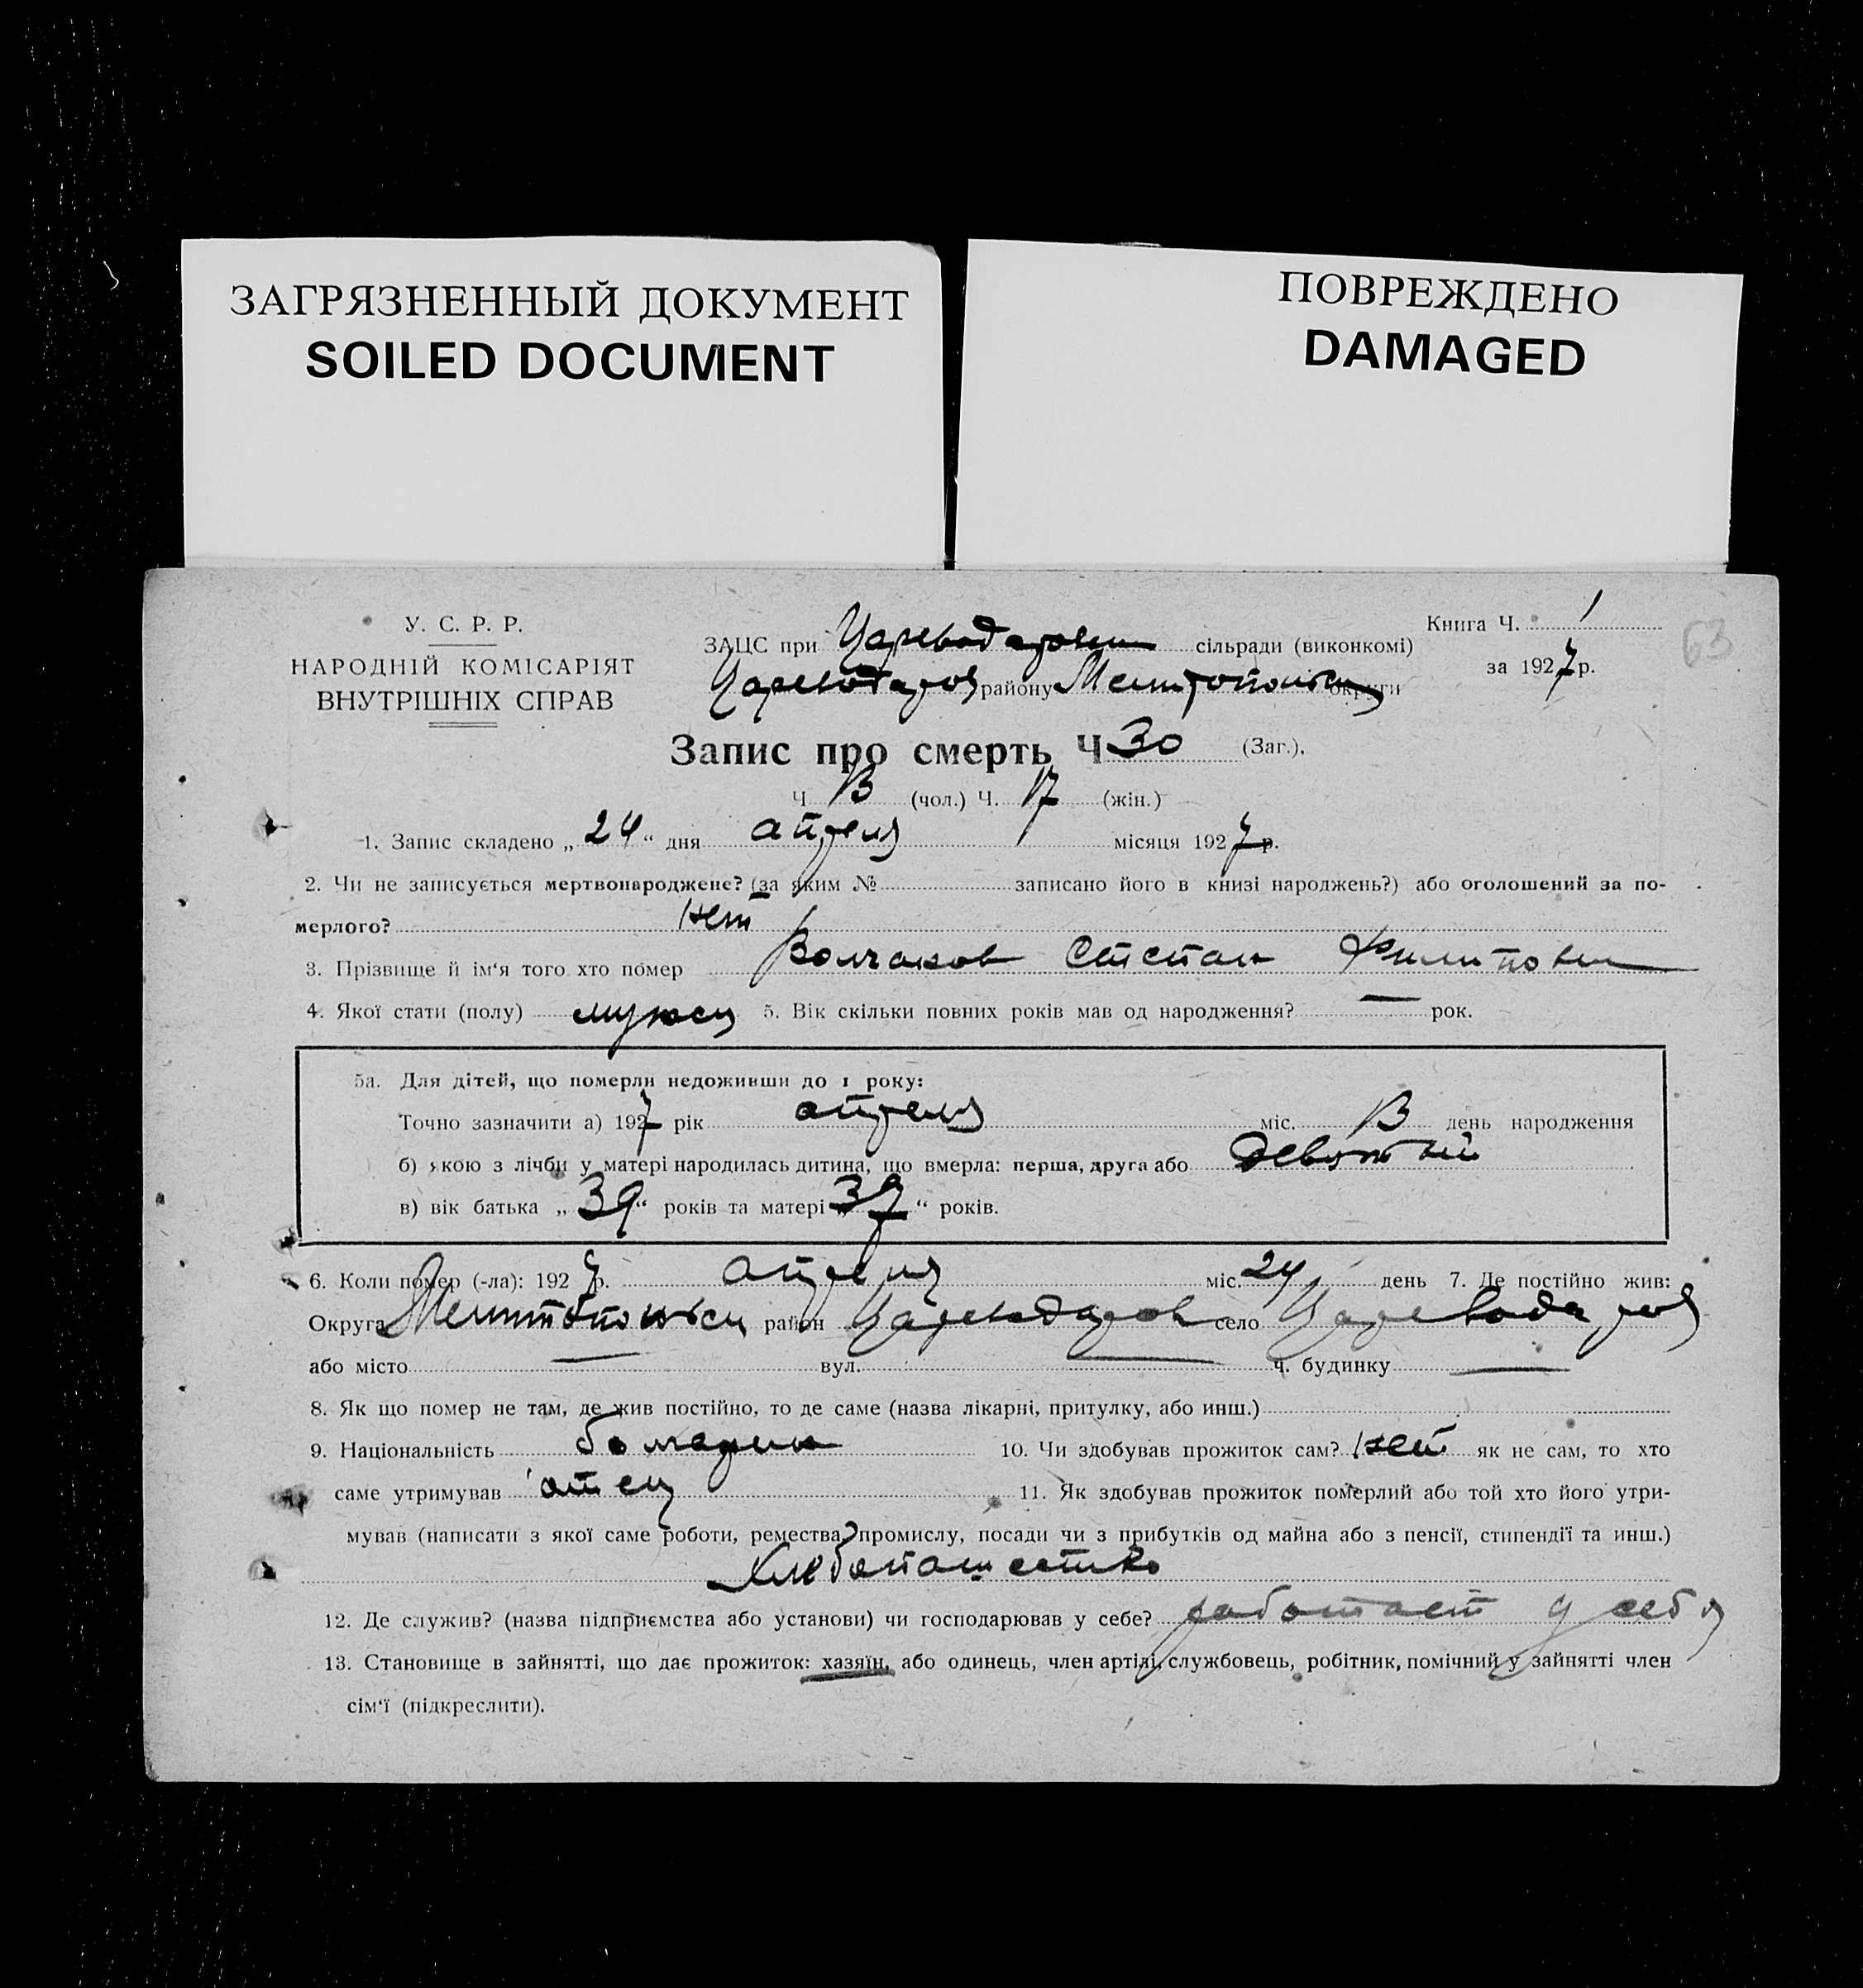 ЗАГРЯЗНЕННЫЙ ДОКУМЕНТ
SOILED DOCUMENT
ПОВРЕЖДЕНО
DAMAGED
У. С. Р. Р.
НАРОДНІЙ КОМІСАРІЯТ
ВНУТРІШНІХ СПРАВ
ЗАЦС при Цареводаровск сільради (виконкомі)
Цареводаров району Мелитопольск округи
Книга Ч. 1
за 1927 р.
63
Запис про смерть Ч 30 (Заг.),
Ч 13 (чол.) Ч. 17 (жін.)
1. Запис складено „ 24 “ дня апреля місяця 1927 р.
2. Чи не записується мертвонароджене? (за яким № записано його в книзі народжень?) або оголошений за по-
мерлого? нет
3. Прізвище й ім‘я того хто помер Волчаков Степан Филипович
4. Якої стати (полу) мужск 5. Вік скільки повних років мав од народження? — рок.
5а. Для дітей, що померли недоживши до 1 року:
Точно зазначити а) 1927 рік апреля міс. 13 день народження
б) якою з лічби у матері народилась дитина, що вмерла: перша, друга або девятый
в) вік батька „ 39 “ років та матері „ 37 “ років.
6. Коли помер (-ла): 1927 р. апреля міс. 24 день 7. Де постійно жив:
Округа Мелитопольск район Цареводаров село Цареводаровка
або місто — вул. — ч. будинку —
8. Як що помер не там, де жив постійно, то де саме (назва лікарні, притулку, або инш.)
9. Національність болгарин 10. Чи здобував прожиток сам? нет як не сам, то хто
саме утримував отец 11. Як здобував прожиток померлий або той хто його утри-
мував (написати з якої саме роботи, ремества, промислу, посади чи з прибутків од майна або з пенсії, стипендії та инш.)
Хлебопашество
12. Де служив? (назва підприємства або установи) чи господарював у себе? работает у себя
13. Становище в зайнятті, що дає прожиток: хазяїн, або одинець, член артілі, службовець, робітник, помічний у зайнятті член
сім‘ї (підкреслити).